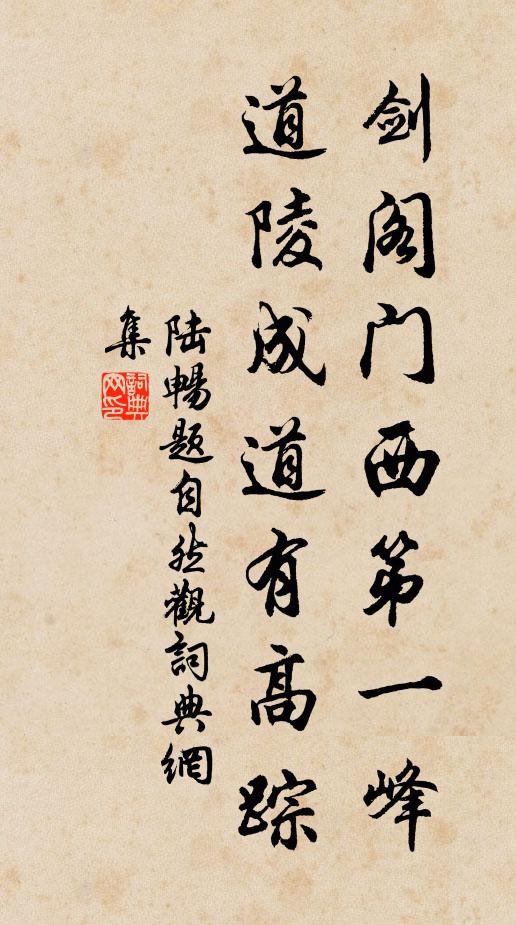 剑阁门西第一峰
道陵成道有高踪
陆畅题自然觀詞典網
集
詞典
网印